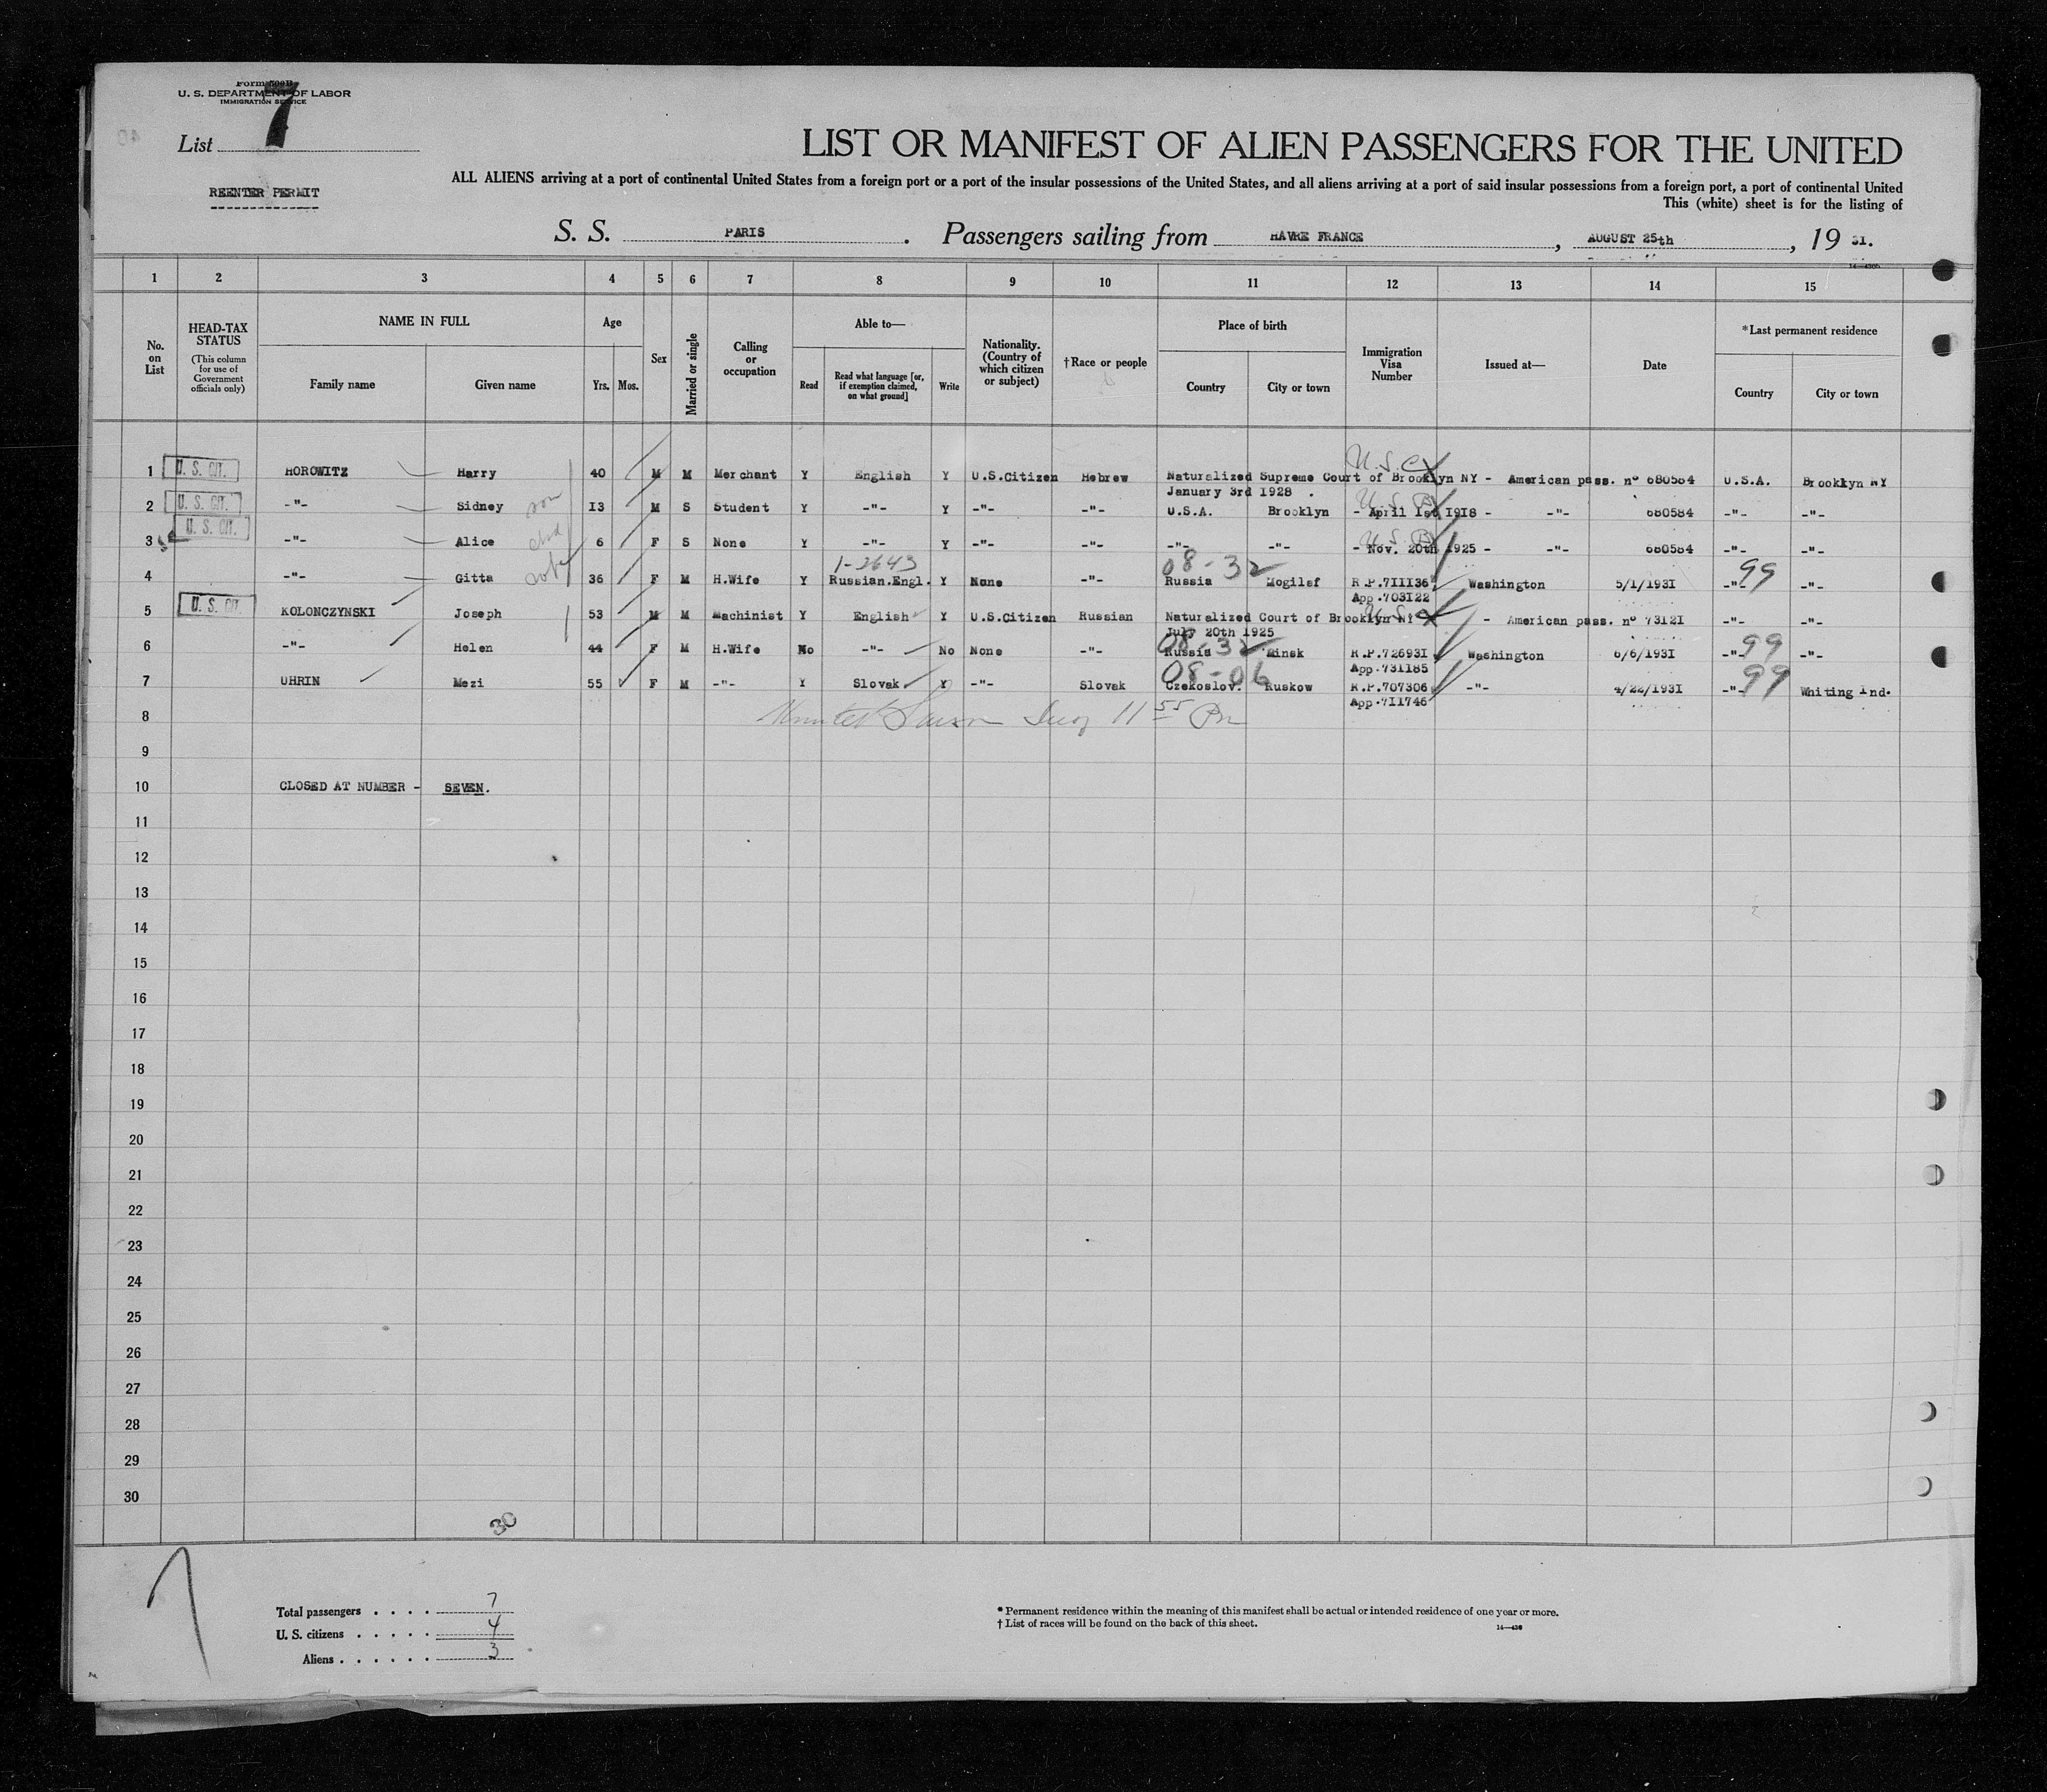 Form 500B
U. S. DEPARTMENT OF LABOR
IMMIGRATION SERVICE
7
List
REENTER PERMIT
LIST OR MANIFEST OF ALIEN PASSENGERS FOR THE UNITED
ALL ALIENS arriving at a port of continental United States from a foreign port or a port of the insular possessions of the United States, and all aliens arriving at a port of said insular possessions from a foreign port, a port of continental United
This (white) sheet is for the listing of
S. S. PARIS . Passengers sailing from HAVRE FRANCE , AUGUST 25th , 19 31.
1 2 3 4 5 6 7 8 9 10 11 12 13 14 15
No. on List
HEAD-TAX STATUS (This column for use of Government officials only)
NAME IN FULL Family name Given name
Age Yrs. Mos.
Sex
Married or single
Calling or occupation
Able to— Read Read what language [or, if exemption claimed, on what ground] Write
Nationality. (Country of which citizen or subject)
†Race or people
Place of birth Country City or town
Immigration Visa Number
Issued at—
Date
*Last permanent residence Country City or town
U.S.C.
1 U. S. CIT. HOROWITZ Harry 40 M M Merchant Y English Y U.S.Citizen Hebrew Naturalized Supreme Court of Brooklyn NY - American pass. nº 680584 U.S.A. Brooklyn NY
January 3rd 1928 .
2 U. S. CIT. -"- Sidney son 13 M S Student Y -"- Y -"- -"- U.S.A. Brooklyn - April 1st 1918 - -"- 680584 -"- -"-
3 U. S. CIT. -"- Alice 6 F S None Y -"- Y -"- -"- -"- -"- - Nov. 20th 1925 - -"- 680584 -"- -"-
1-2643 08-32 99
4 -"- Gitta 36 F M H.Wife Y Russian.Engl. Y None -"- Russia Mogilef R.P.711136 Washington 5/1/1931 -"- -"-
App.703122
5 U. S. CIT. KOLONCZYNSKI Joseph 53 M M Machinist Y English Y U.S.Citizen Russian Naturalized Court of Brooklyn NY - American pass. nº 73121 -"- -"-
July 20th 1925
08-32 99
6 -"- Helen 44 F M H.Wife No -"- No None -"- Russia Minsk R.P.726931 Washington 6/6/1931 -"- -"-
App.731185
08-06 99
7 UHRIN Mezi 55 F M -"- Y Slovak Y -"- Slovak Czekoslov. Ruskow R.P.707306 -"- 4/22/1931 -"- Whiting Ind.
App.711746
8
11 55 Pm
9
10 CLOSED AT NUMBER - SEVEN.
11
12
13
14
15
16
17
18
19
20
21
22
23
24
25
26
27
28
29
30
30
7
Total passengers . . . . 7
U. S. citizens . . . . . 4
Aliens . . . . . . 3
* Permanent residence within the meaning of this manifest shall be actual or intended residence of one year or more.
† List of races will be found on the back of this sheet.